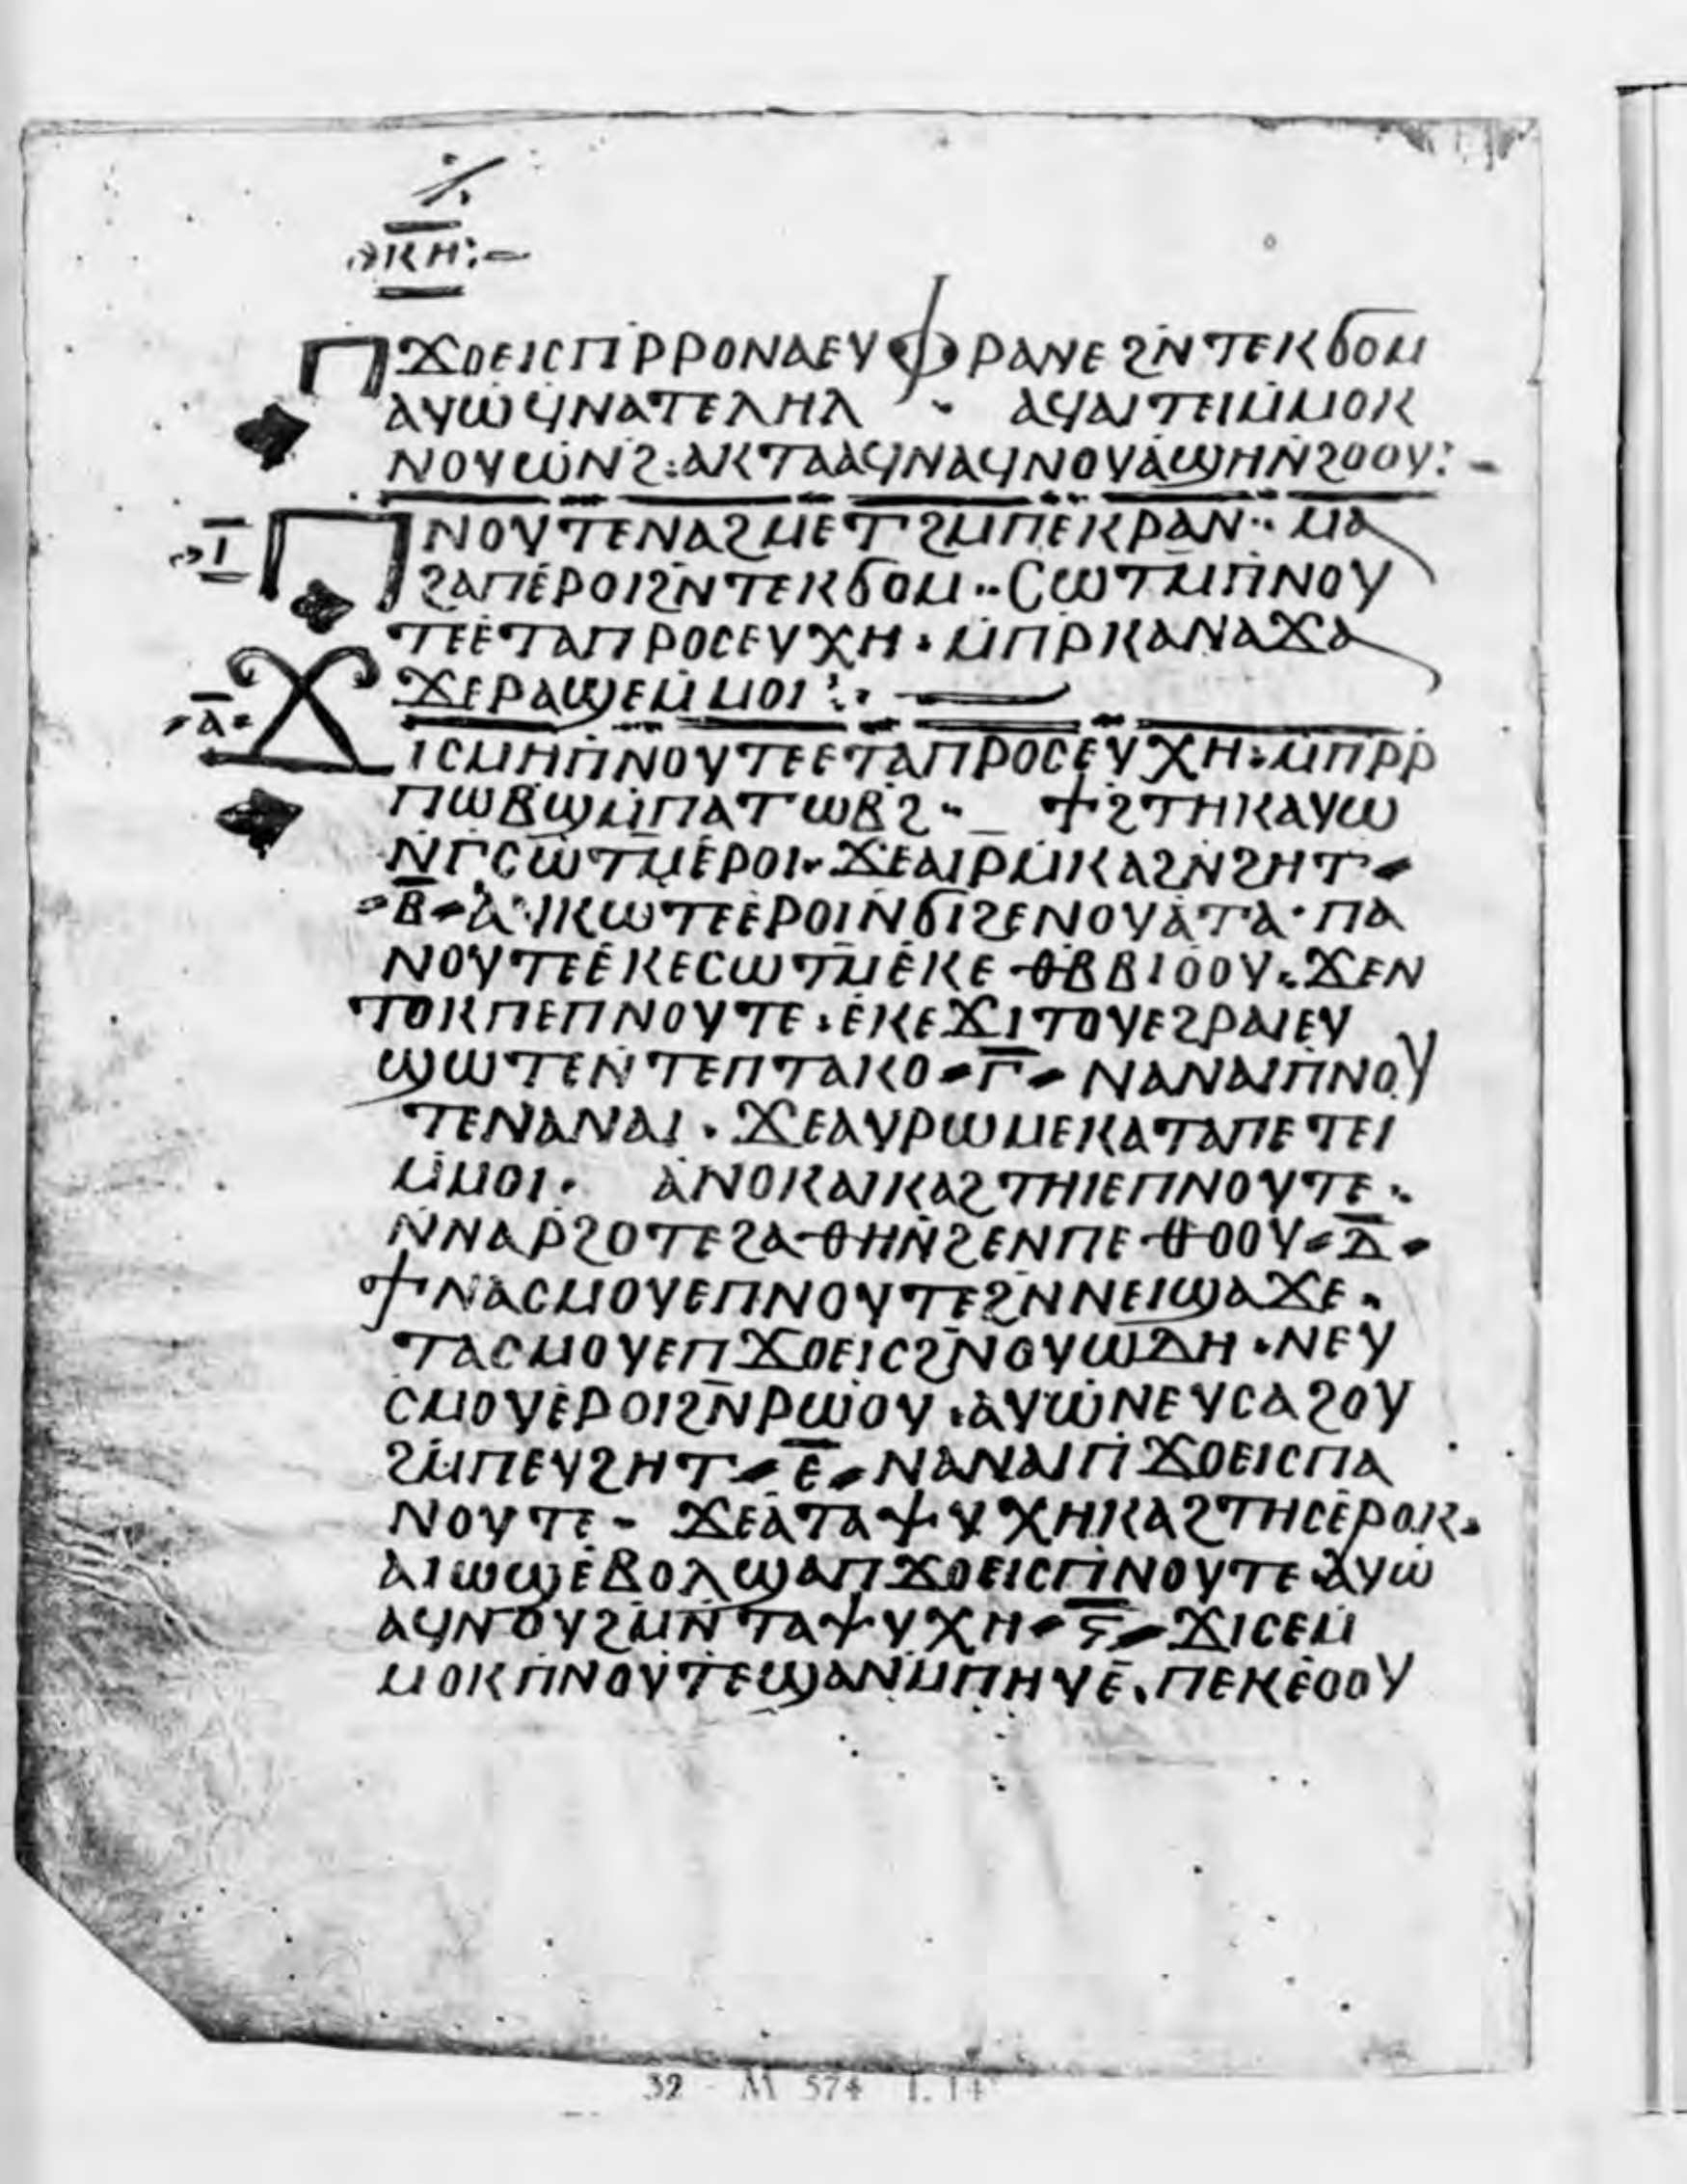 ⲕⲏ
ⲡϫⲟⲉⲓⲥ ⲡⲣ̄ⲣⲟ ⲛⲁⲉⲩⲫⲣⲁⲛⲉ ϩⲛ̄ ⲧⲉⲕϭⲟⲙ
ⲁⲩⲱ ϥⲛⲁⲧⲉⲗⲏⲗ · ⲁϥⲁⲓⲧⲉⲓ ⲙ̄ⲙⲟⲕ
ⲛⲟⲩⲱⲛϩ : ⲁⲕⲧⲁⲁϥ ⲛⲁϥ ⲛⲟⲩⲁϣⲏ ⲛ̄ϩⲟⲟⲩ :-
ⲓ̄ ⲡⲛⲟⲩⲧⲉ ⲛⲁϩⲙⲉⲧ ϩⲙ ⲡⲉⲕⲣⲁⲛ ·· ⲙⲁ
ϩⲁⲡ ⲉⲣⲟⲓ ϩⲛ̄ ⲧⲉⲕϭⲟⲙ ·· ⲥⲱⲧⲙ̄ ⲡⲛⲟⲩ
ⲧⲉ ⲉⲧⲁⲡⲣⲟⲥⲉⲩⲭⲏ · ⲙ̄ⲡⲣ̄ⲕⲁ ⲛⲁϫⲁ
ϫⲉ ⲣⲁϣⲉ ⲙ̄ⲙⲟⲓ :· —
ⲁ̄ ϫⲓⲥⲙⲏ ⲡⲛⲟⲩⲧⲉ ⲉⲧⲁⲡⲣⲟⲥⲉⲩⲭⲏ : ⲙ̄ⲡⲣⲣ̄
ⲡⲱⲃϣ ⲙ̄ⲡⲁⲧⲱⲃϩ ·· ϯϩⲧⲏⲕ ⲁⲩⲱ
ⲛ̄ⲅⲥⲱⲧⲙ̄ ⲉⲣⲟⲓ · ϫⲉ ⲁⲓⲣ̄ⲙ̄ⲕⲁϩ ⲛ̄ϩⲏⲧ ·
ⲃ̄ · ⲁⲩⲕⲱⲧⲉ ⲉⲣⲟⲓ ⲛ̄ϭⲓ ϩⲉⲛⲟⲩⲁⲧⲁ · ⲡⲁ
ⲛⲟⲩⲧⲉ ⲉⲕⲉⲥⲱⲧⲙ̄ ⲉⲕⲉⲑⲃⲃⲓⲟⲟⲩ · ϫⲉ ⲛ
ⲧⲟⲕ ⲡⲉ ⲡⲛⲟⲩⲧⲉ · ⲉⲕⲉϫⲓⲧⲟⲩ ⲉϩⲣⲁⲓ ⲉⲩ
ϣⲱⲧⲉ ⲛ̄ⲧⲉ ⲡⲧⲁⲕⲟ · ⲅ̄ · ⲛⲁ ⲛⲁⲓ ⲡⲛⲟⲩ
ⲧⲉ ⲛⲁ ⲛⲁⲓ · ϫⲉ ⲁⲩⲣⲱⲙⲉ ⲕⲁⲧⲁⲡⲉⲧⲉⲓ
ⲙ̄ⲙⲟⲓ · ⲁⲛⲟⲕ ⲁⲓⲕⲁϩⲧⲏⲓ ⲉⲡⲛⲟⲩⲧⲉ ·
ⲛ̄ⲛⲁⲣ̄ϩⲟⲧⲉ ϩⲁⲑⲏ ⲛ̄ϩⲉⲛⲡⲉⲑⲟⲟⲩ · ⲇ̄ ·
ϯⲛⲁⲥⲙⲟⲩ ⲉⲡⲛⲟⲩⲧⲉ ϩⲛ̄ ⲛⲉⲓϣⲁϫⲉ ·
ⲧⲁⲥⲙⲟⲩ ⲉⲡϫⲟⲉⲓⲥ ϩⲛ̄ ⲟⲩⲱⲇⲏ · ⲛⲉⲩ
ⲥⲙⲟⲩ ⲉⲣⲟⲓ ϩⲛ̄ ⲣⲱⲟⲩ · ⲁⲩⲱ ⲛⲉⲩⲥⲁϩⲟⲩ
ϩⲙ̄ ⲡⲉⲩϩⲏⲧ · ⲉ̄ · ⲛⲁ ⲛⲁⲓ ⲡϫⲟⲉⲓⲥ ⲡⲁ
ⲛⲟⲩⲧⲉ · ϫⲉ ⲁⲧⲁⲯⲩⲭⲏ ⲕⲁϩⲧⲏⲥ ⲉⲣⲟⲕ ·
ⲁⲓⲱϣ ⲉⲃⲟⲗ ϣⲁ ⲡϫⲟⲉⲓⲥ ⲡⲛⲟⲩⲧⲉ ⲁⲩⲱ
ⲁϥⲛⲟⲩϩⲙ̄ ⲛ̄ⲧⲁⲯⲩⲭⲏ · ⲋ̄ · ϫⲓⲥⲉ ⲙ̄
ⲙⲟⲕ ⲡⲛⲟⲩⲧⲉ ϣⲁ ⲛⲙ̄ⲡⲏⲩⲉ · ⲡⲉⲕⲉⲟⲟⲩ
32 - M 574 f. 14